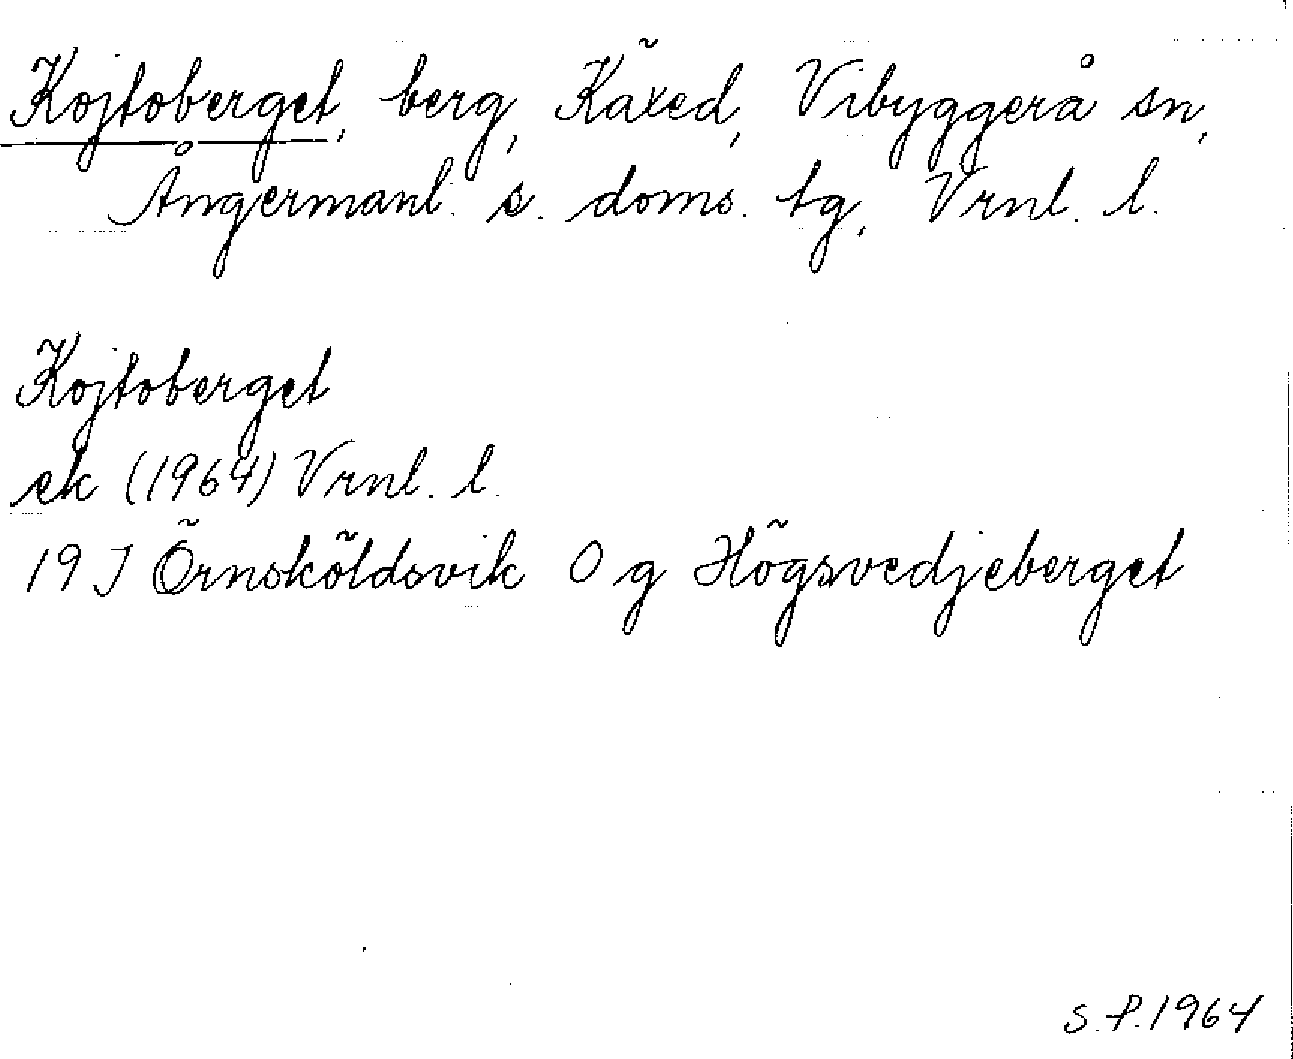 Kojtoberget, berg, Käxed, Vibyggerå sn,
Ångermanl. s. doms. tg, Vrnl. l.
Kojtoberget
ek (1964) Vrnl. l.
19 J Örnsköldsvik O g Högsvedjeberget
S.P.1964